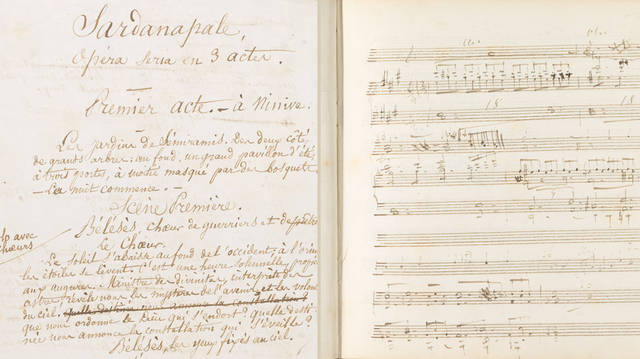 Sardanapale,
Opéra seria en 3 actes.
Premier acte. – à Ninive.
Les jardins de Sémiramis. Des deux côtés
de grands arbres; au fond, un grand pavillon d'été,
à trois portes, à moitié masqué par des bosquets
– La nuit commence. –
Scène Première.
Bélésès, chœur de guerriers et de
Le Chœur.
avec
chœurs
Le soleil s'abaisse au fond de l'occident à l'
les étoiles se lèvent. C'est une heure solennelle, propice
aux augures. Ministre des divinités, interprète des
astres, révèle nous les mystères de l'avenir et les volontés
du ciel. annonce la constellation
que nous ordonne le qui s'endort? quelle desti-
née nous annonce la constellation qui s'éveille?
Bélésès, les yeux fixés au ciel.